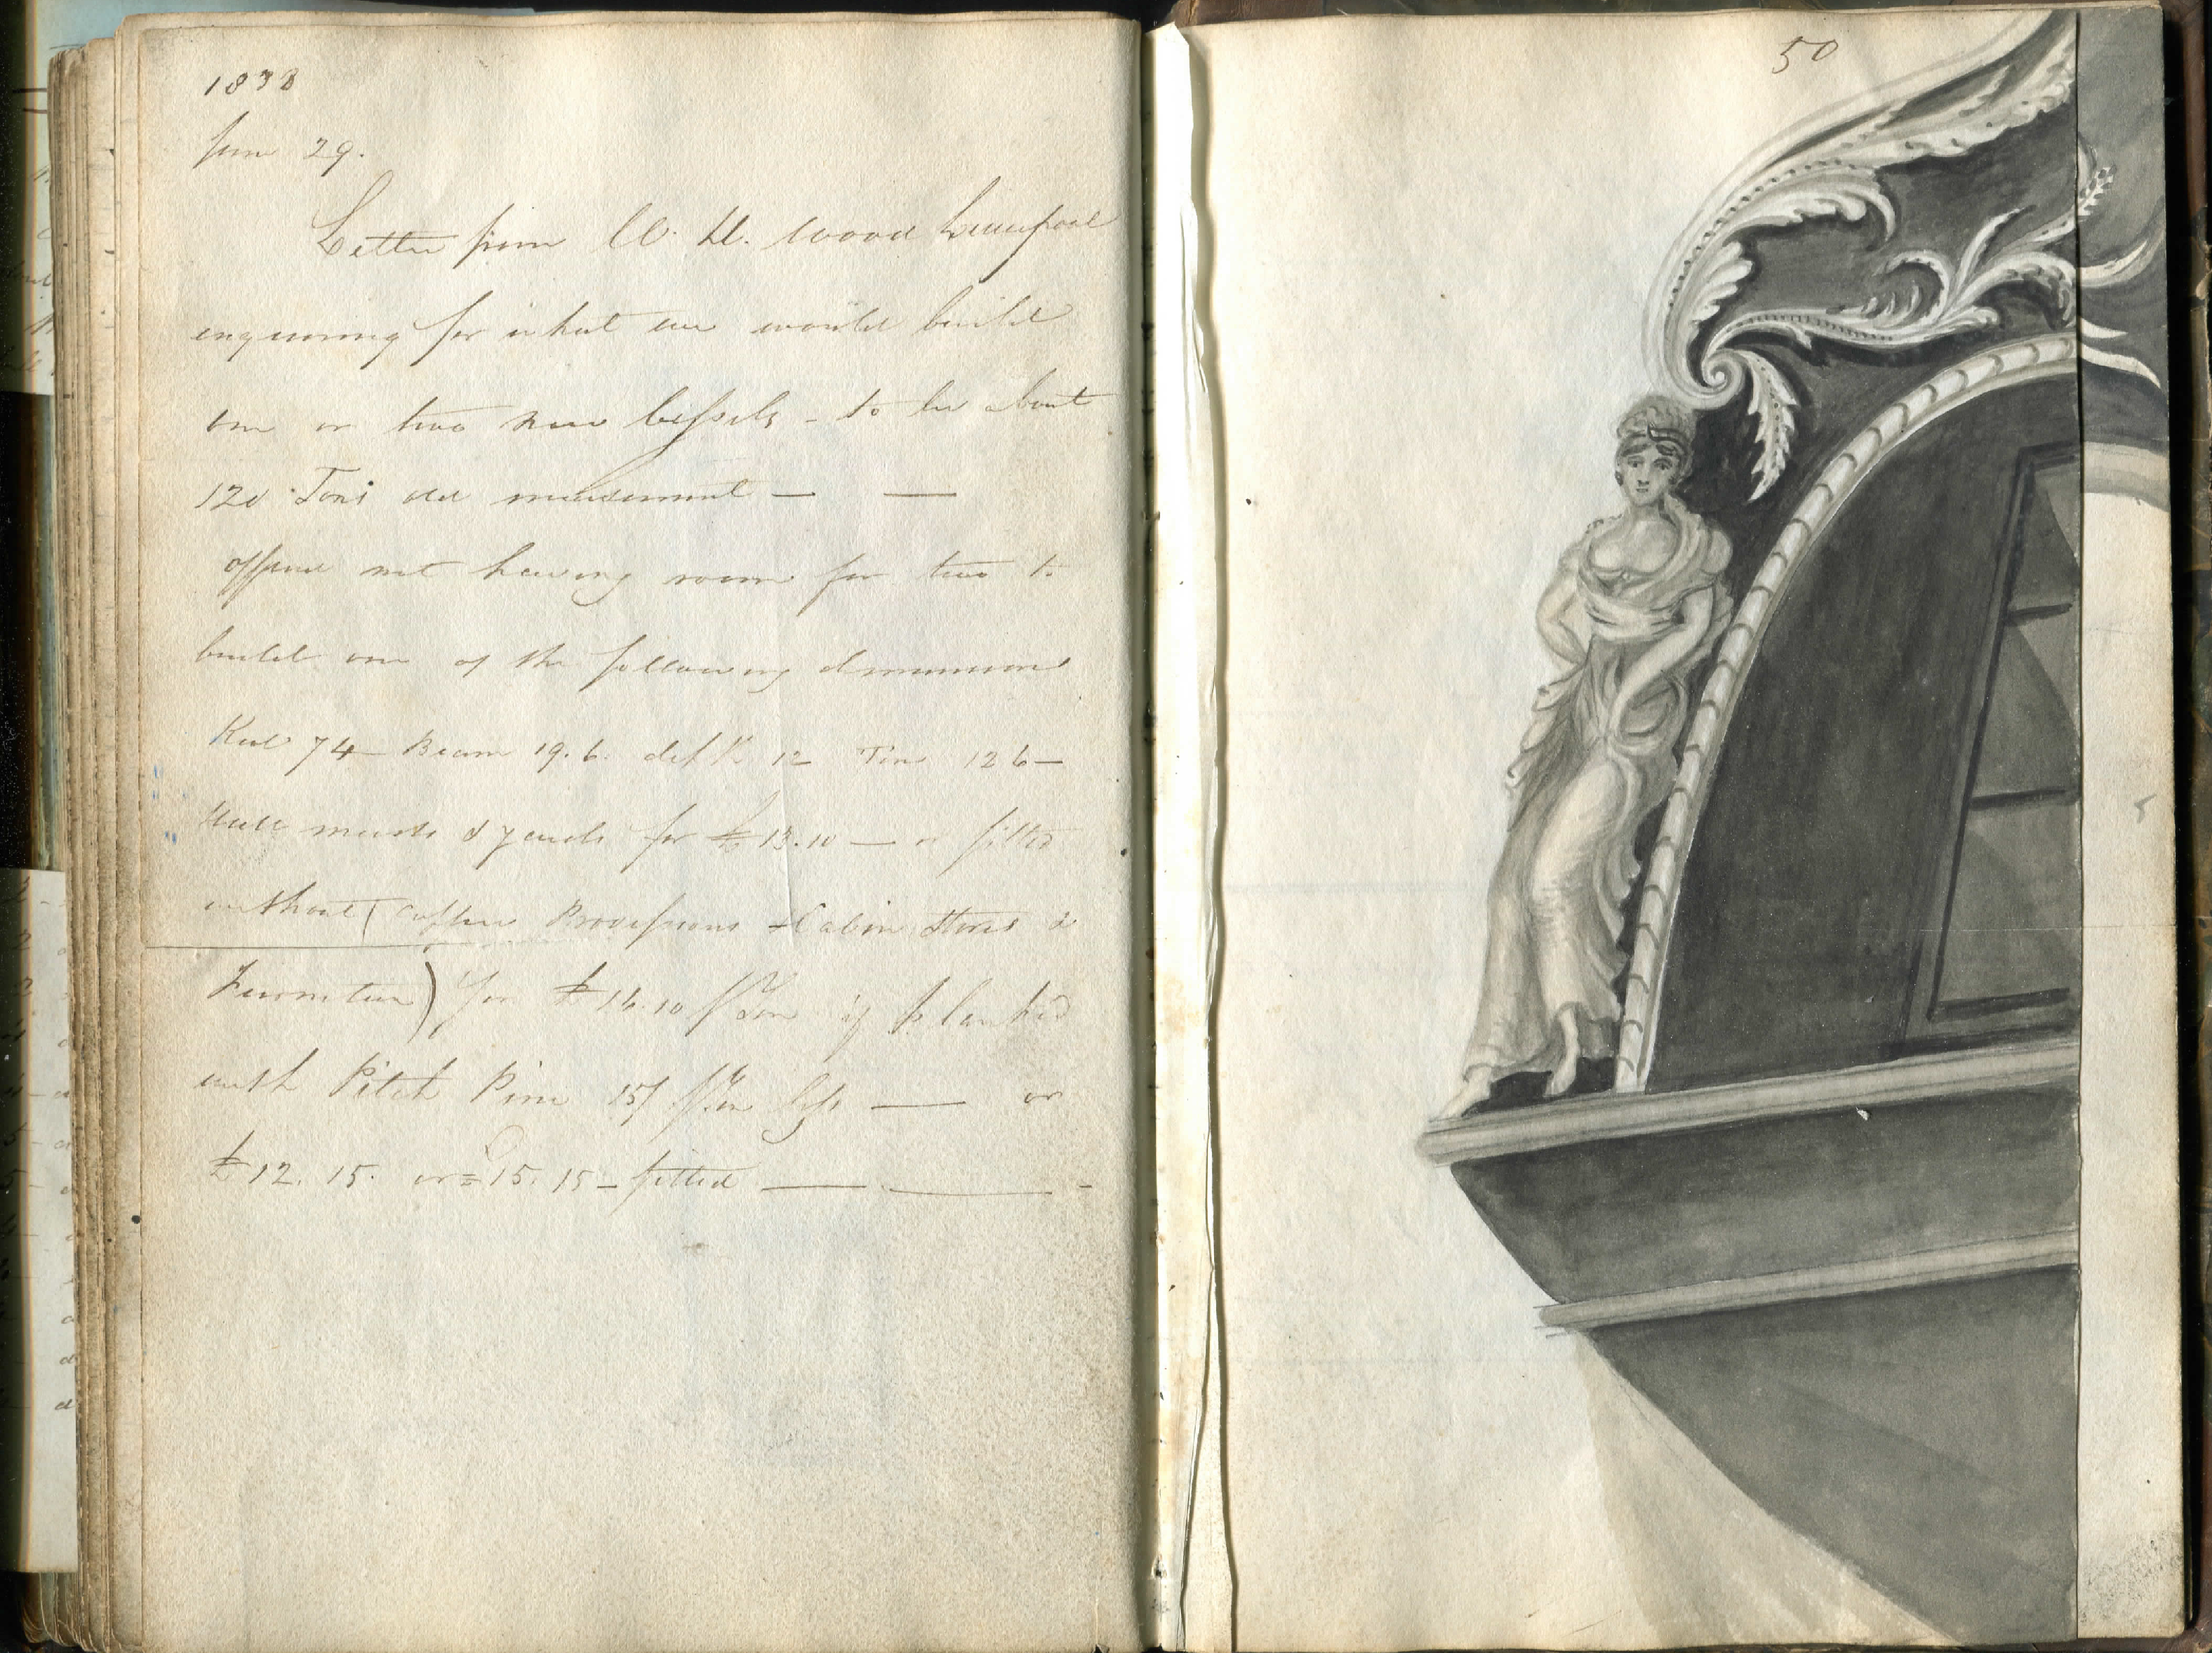 1838
June 29.
Letter from W. H. Wood Liverpool
enquiring for what we would build
one or two new Vessels - to be about
120 Tons old measurement — —
offered not having room for two to
build one of the following dimensions
Keel 74 — Beam 19.6. depth 12 Tons 126 —
Hull masts & yards for £13.10 — or fitted
without (Copper Provisions - Cabin Stores &
Furniture) for £16.10 p Ton if planked
with Pitch Pine 15/ p Ton less — or
£12.15. or £15.15 - fitted — — -
50